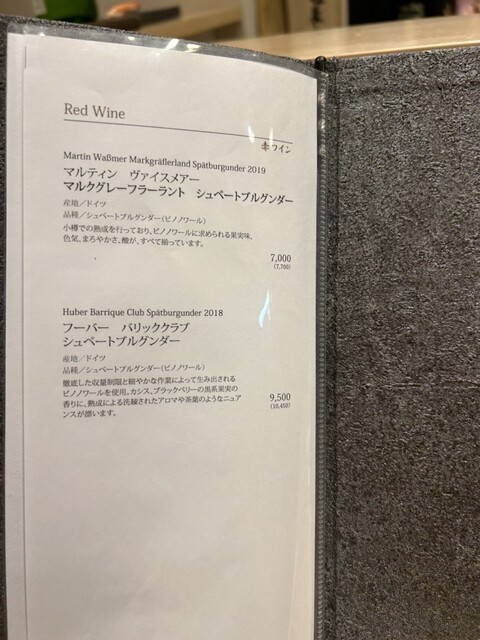 Red Wine
赤ワイン
Martin Waßmer Markgräflerland Spätburgunder 2019
マルティン　ヴァイスメアー
マルクグレーフラーラント　シュペートブルグンダー
産地／ドイツ
品種／シュペートブルグンダー(ピノノワール)
小樽での熟成を行っており、ピノノワールに求められる果実味、
色気、まろやかさ、酸が、すべて揃っています。
7,000
(7,700)
Huber Barrique Club Spätburgunder 2018
フーバー　バリッククラブ
シュペートブルグンダー
産地／ドイツ
品種／シュペートブルグンダー(ピノノワール)
徹底した収量制限と細やかな作業によって生み出される
ピノノワールを使用。カシス、ブラックベリーの黒系果実の
香りに、熟成による洗練されたアロマや茶葉のようなニュア
ンスが漂います。
9,500
(10,450)